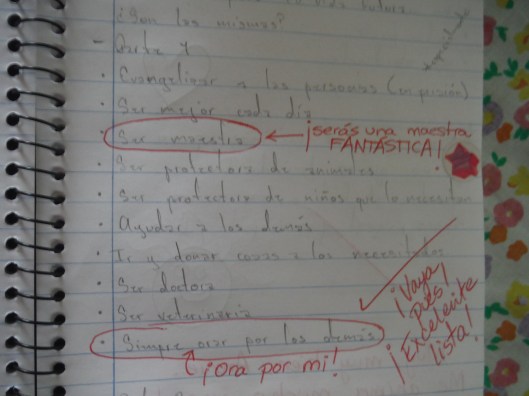 ¿Son las mismas?
- Parte 4
· Evangelizar a las personas (en prisión)
· Ser mejor cada día
· Ser maestra
¡serás una maestra
FANTÁSTICA!
· Ser protectora de animales
· Ser protectora de niños que lo necesitan
· Ayudar a los demás
· Ir y donar cosas a los necesitados
· Ser doctora
· Ser veterinaria
¡Vaya
pues!
¡Excelente
lista!
· Simpre orar por los demás
¡ora por mi!